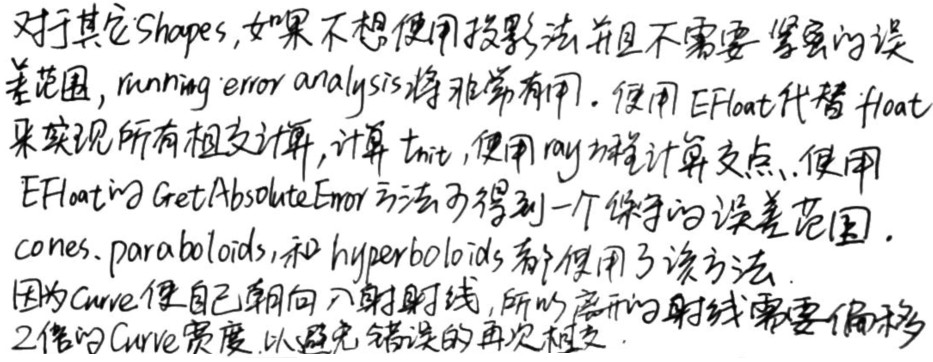 对于其它Shapes,如果不想使用投影法并且不需要紧密的误
差范围, running error analysis将非常有用. 使用 EFloat代替 float
来实现所有相交计算,计算 tHit,使用 ray方程计算交点.使用
EFloat的 GetAbsoluteError方法可得到一个保守的误差范围.
cones.paraboloids,和 hyperboloids都使用了该方法.
因为Curve使自己朝向入射射线,所以离开的射线需要偏移
2倍的Curve宽度,以避免错误的再次相交.